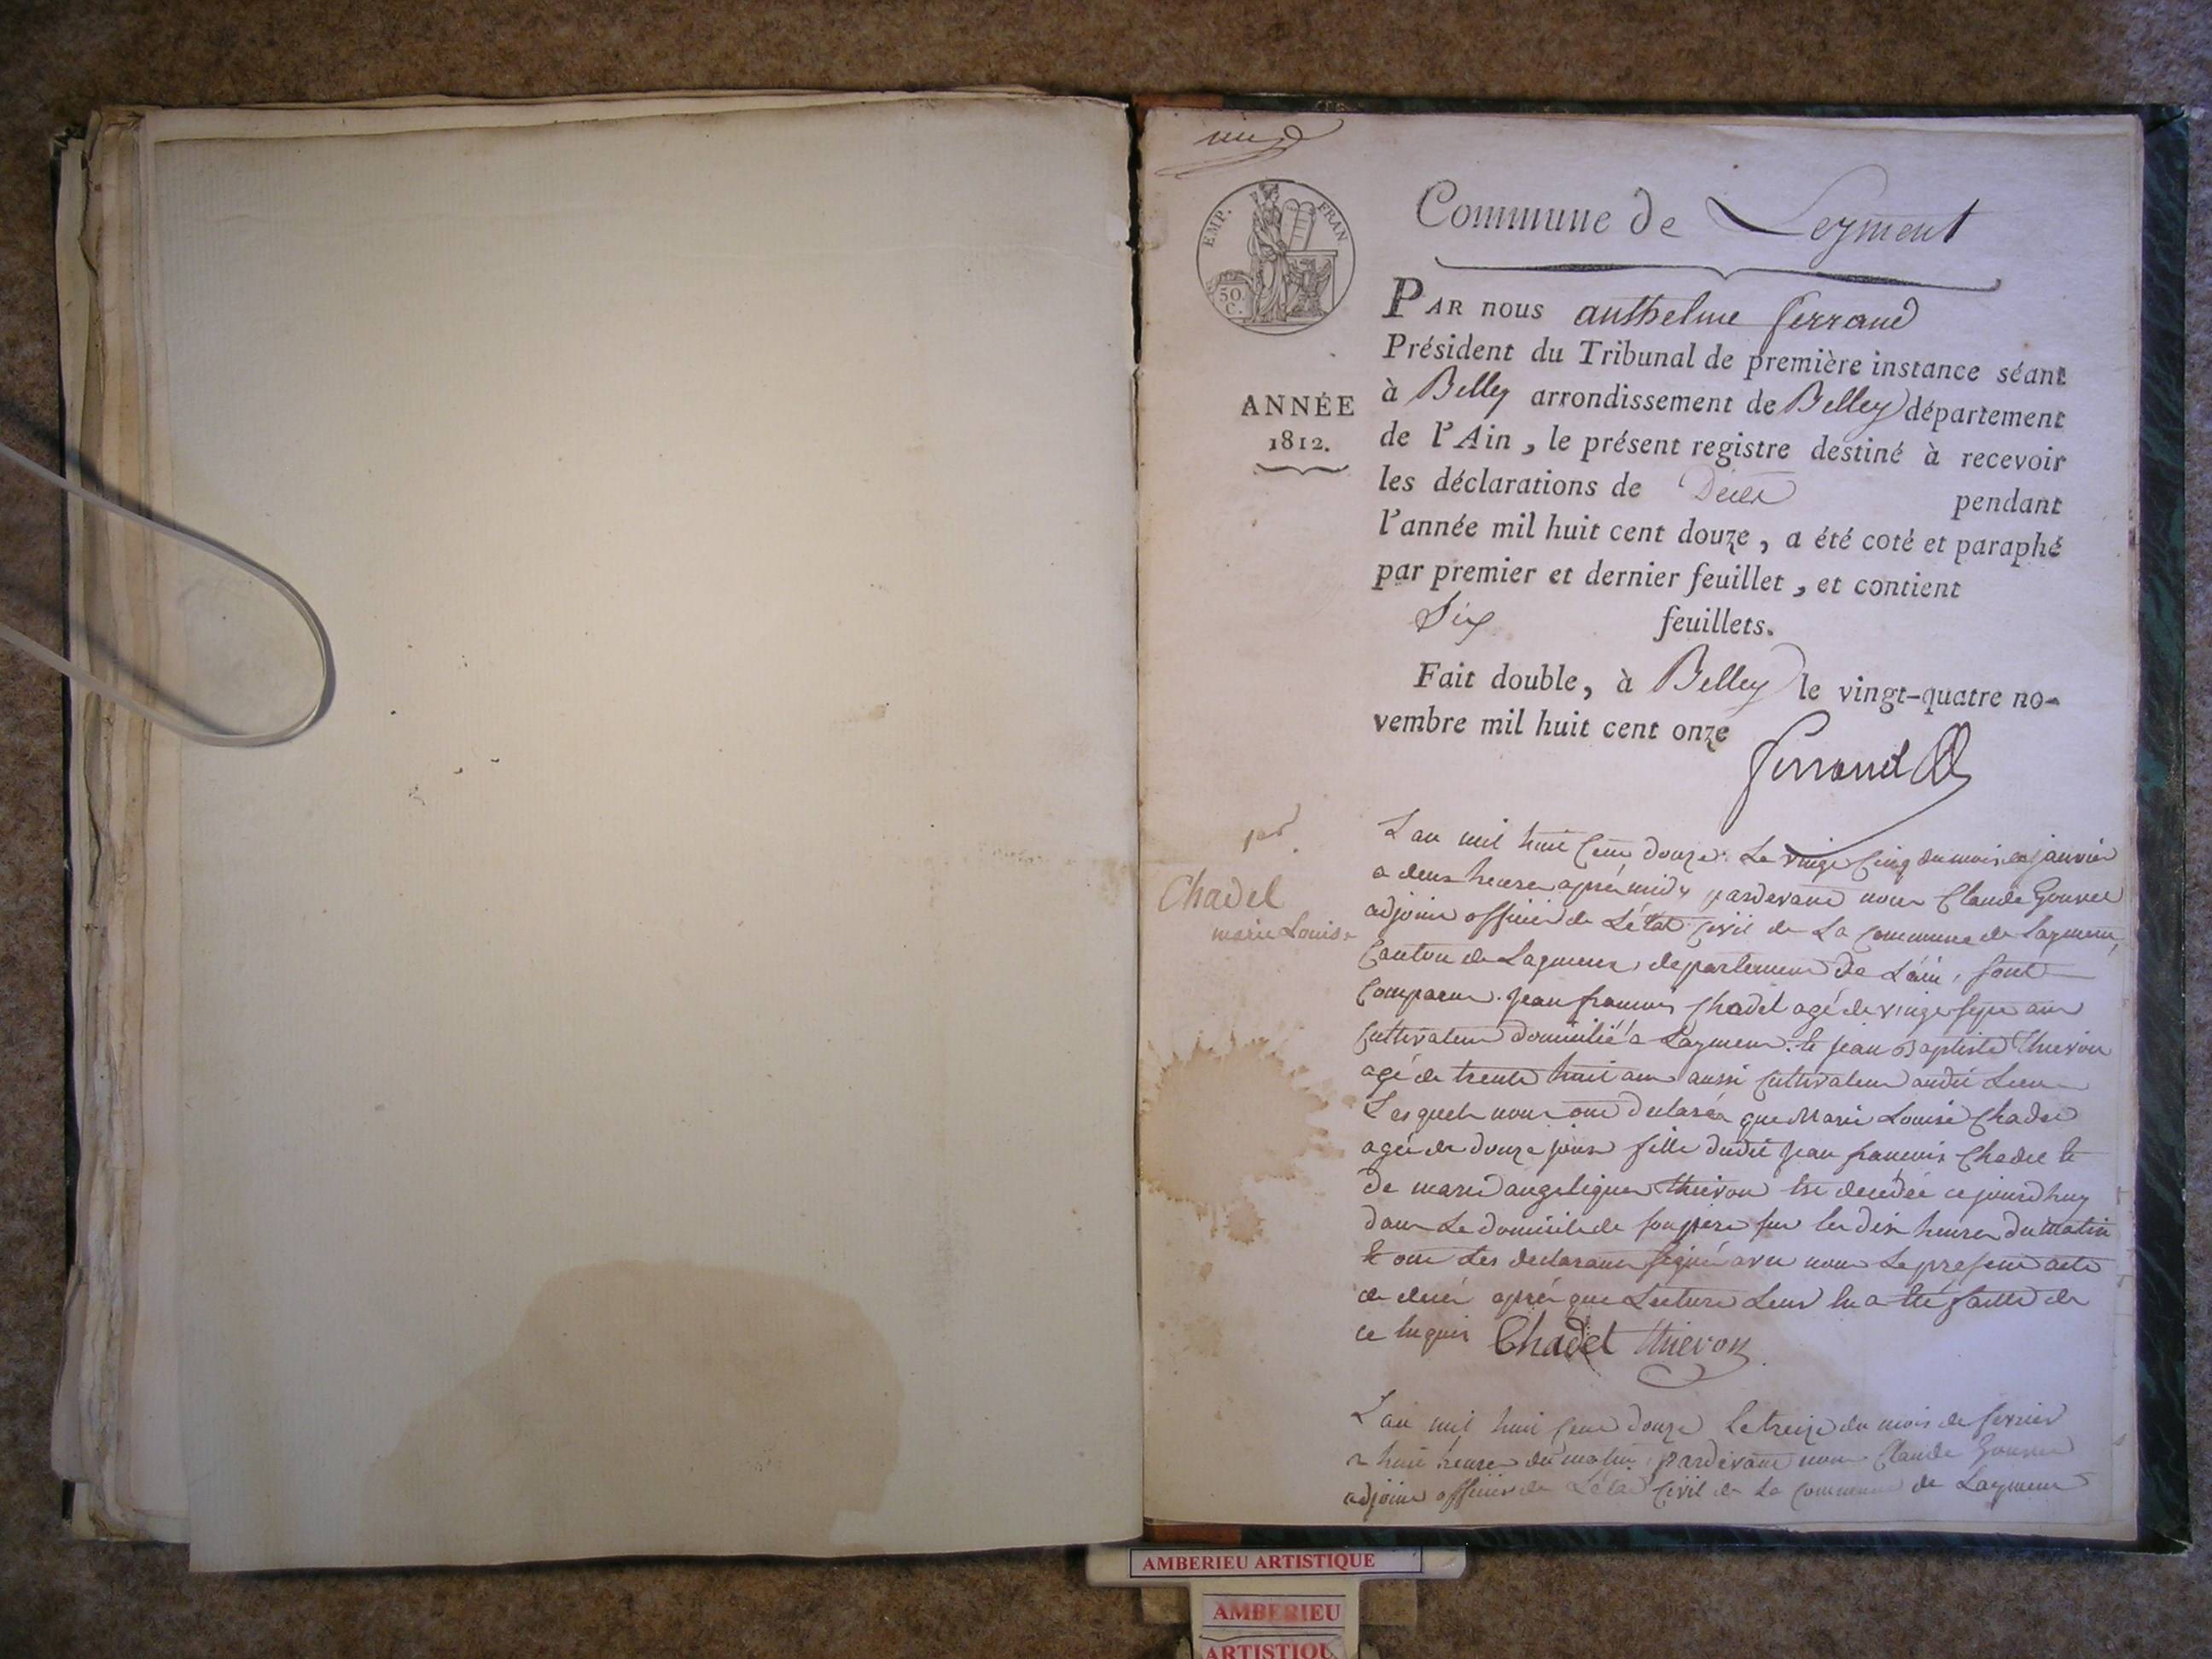 une
EMP. FRAN
50.
C.
Commune de Leyment
PAR nous anthelme ferrand
Président du Tribunal de première instance séant
à Belley arrondissement de Belley département
ANNÉE
1812.
de l'Ain, le présent registre destiné à recevoir
les déclarations de Décès pendant
l'année mil huit cent douze, a été coté et paraphé
par premier et dernier feuillet, et contient
Six feuillets.
Fait double, à Belley le vingt-quatre no-
vembre mil huit cent onze
ferrand
Chadel
marie Louise
L an mil huit Cent douze Le vingt Cinq du mois de janvier
a deux heures après midy pardevant nous Claude
adjoint officier de Létat Civil de La Commune de Laymen
Canton de Lagnieu, departement De Lain, sont
Comparus jean francois Chadel agé de vingt sept ans
Cultivateur domicilié a Laymen. Et jean Baptiste thievon
agé de trente huit ans aussi Cultivateur audit Lieu
Lesquels nous ont declarés que Marie Louise Chadel
agée de douze jours fille dudit jean francois Chadel Et
De marie angelique thievon Est decedée ce jourdhuy
dans Le domicile de son père sur les dix heures du matin
Et ont Les declarants signé avec nous Le present acte
de decés après que Lecture Leur En a Eté faitte de
ce Enquis Chadel thievon
L an mil huit Cent douze Le treize du mois de fevrier
a huit heures du matin pardevant nous Claude
adjoint officier de Létat Civil de La Commune de Laymen
AMBERIEU ARTISTIQUE
AMBERIEU
ARTISTIQU